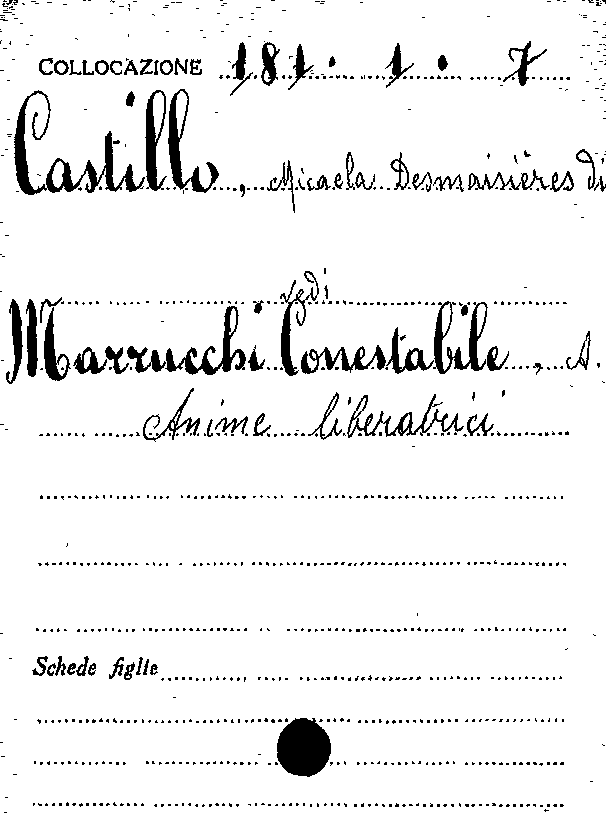 COLLOCAZIONE 181. 1. 7
Castillo, Micaela Desmaisières di
vedi
Marrucchi Conestabile, A.
Anime liberatrici
Schede figlie